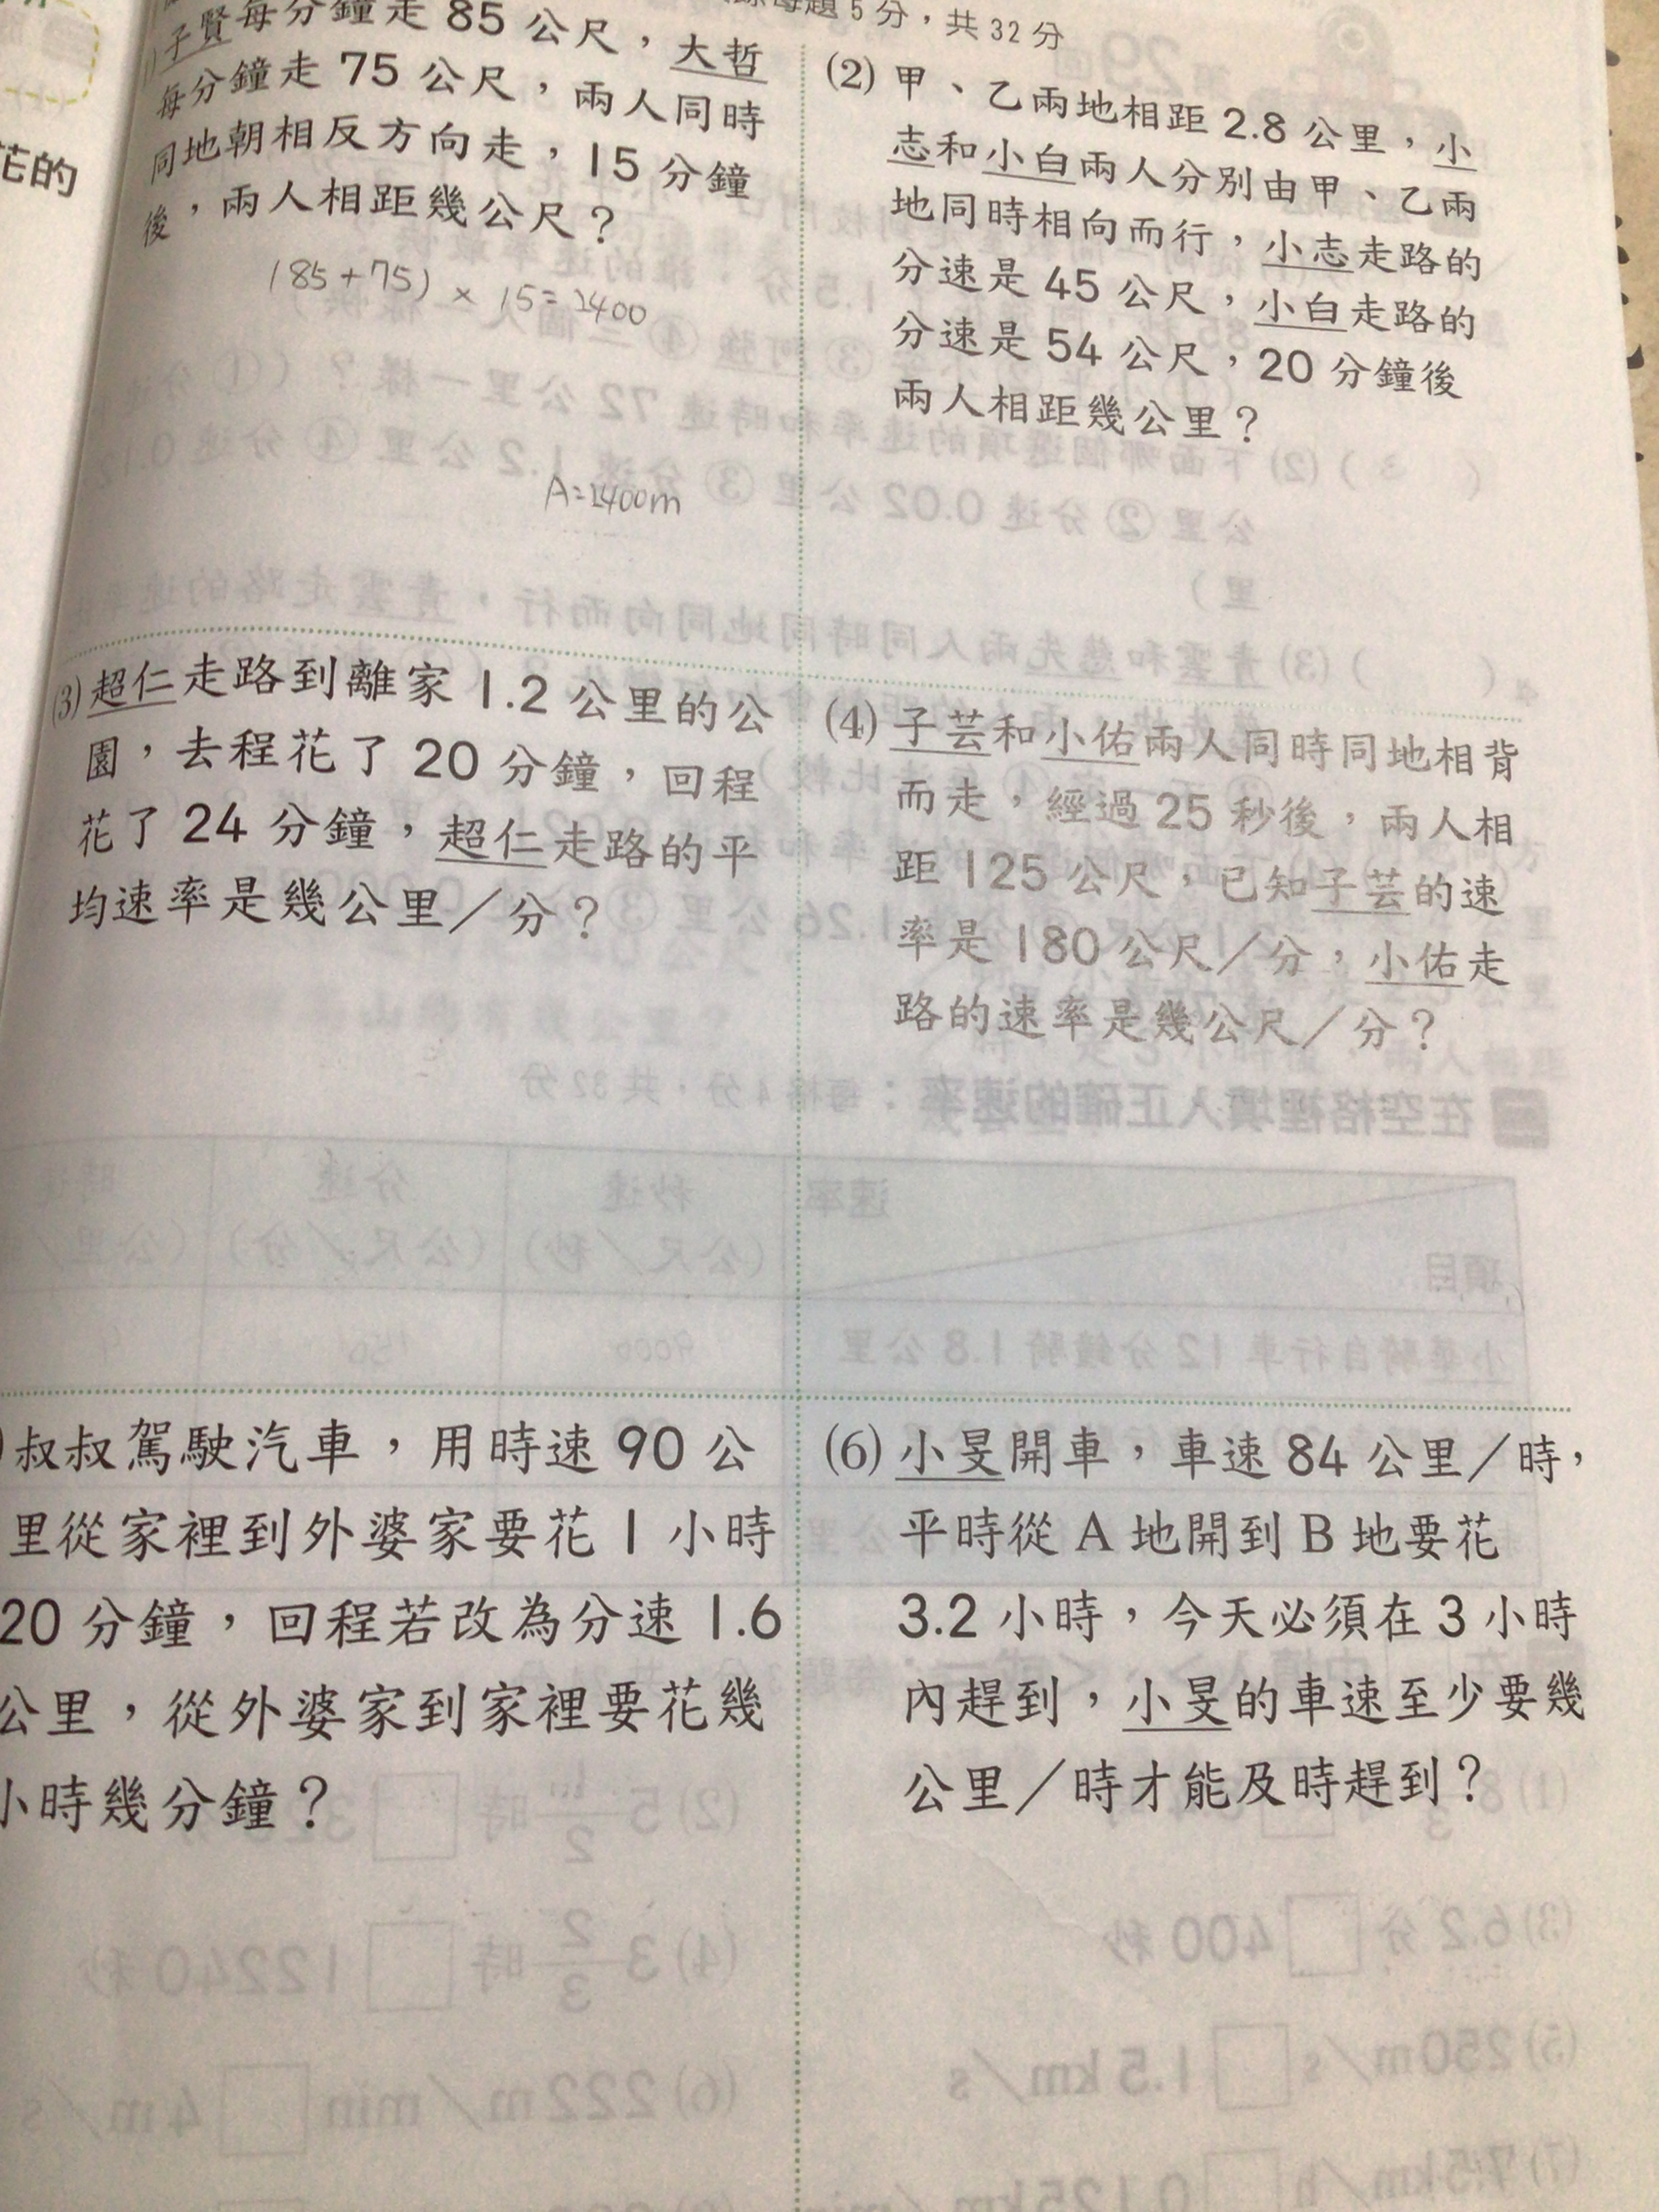 花的
每題5分，共32分
子賢每分鐘走 85 公尺，大哲
每分鐘走 75 公尺，兩人同時
同地朝相反方向走，15 分鐘
後，兩人相距幾公尺？
(85+75) × 15=2400
A=2400m
(2) 甲、乙兩地相距 2.8 公里，小
志和小白兩人分別由甲、乙兩
地同時相向而行，小志走路的
分速是 45 公尺，小白走路的
分速是 54 公尺，20 分鐘後
兩人相距幾公里？
(3) 超仁走路到離家 1.2 公里的公
園，去程花了 20 分鐘，回程
花了 24 分鐘，超仁走路的平
均速率是幾公里／分？
(4) 子芸和小佑兩人同時同地相背
而走，經過 25 秒後，兩人相
距 125 公尺，已知子芸的速
率是 180 公尺／分，小佑走
路的速率是幾公尺／分？
)叔叔駕駛汽車，用時速 90 公
里從家裡到外婆家要花 1 小時
20 分鐘，回程若改為分速 1.6
公里，從外婆家到家裡要花幾
小時幾分鐘？
(6) 小旻開車，車速 84 公里／時，
平時從 A 地開到 B 地要花
3.2 小時，今天必須在 3 小時
內趕到，小旻的車速至少要幾
公里／時才能及時趕到？